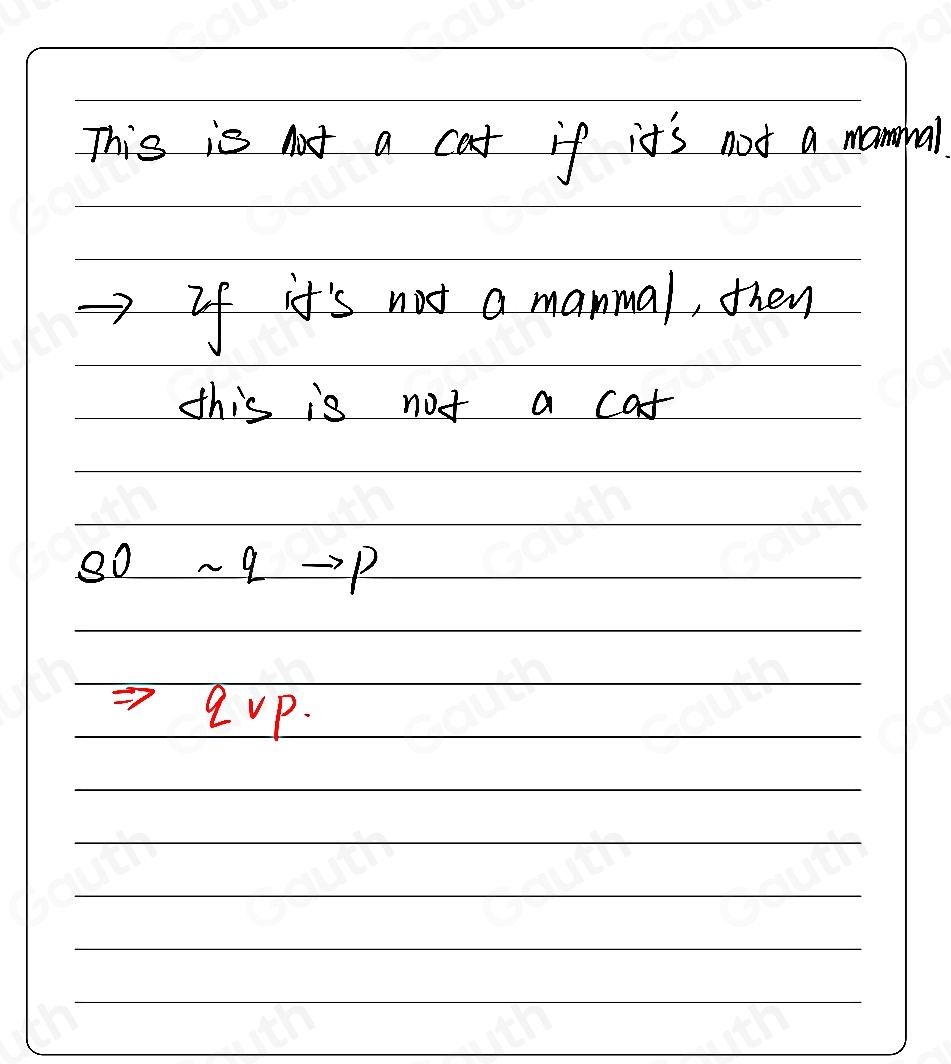 This is not a cat if it's not a mammal.
→ If it's not a mammal, then
this is not a cat
so ~q → p
⇒ q ∨ p.